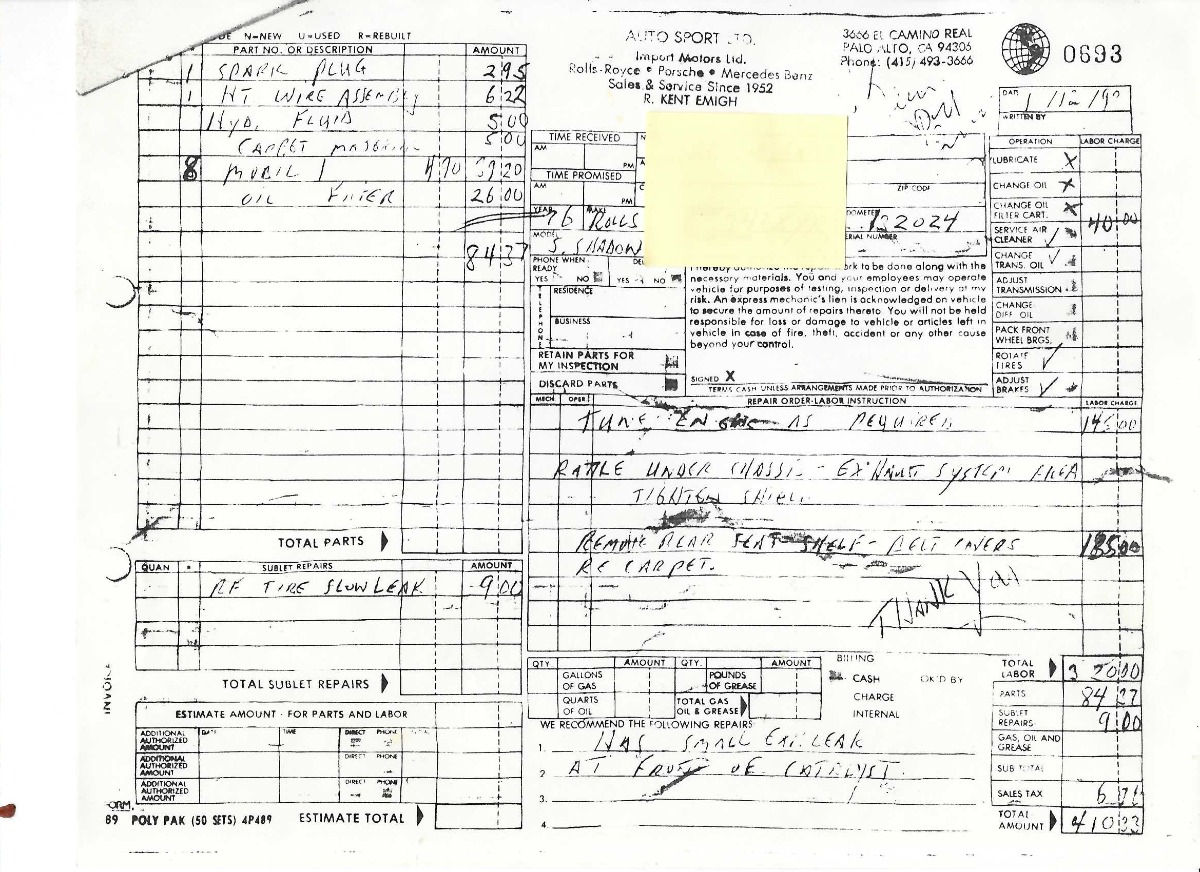 N=NEW U=USED R=REBUILT
PART NO. OR DESCRIPTION AMOUNT
1 SPARK PLUG 2 95
1 HT WIRE ASSEMBLY 6 22
HYD. FLUID 5 00
CARPET 5 00
8 MOBIL 1 4 90 39 20
OIL FILTER 26 00
84 37
TOTAL PARTS
QUAN SUBLET REPAIRS AMOUNT
RF TIRE SLOW LEAK 9 00
TOTAL SUBLET REPAIRS
ESTIMATE AMOUNT - FOR PARTS AND LABOR
ADDITIONAL AUTHORIZED AMOUNT DATE TIME DIRECT PHONE
ADDITIONAL AUTHORIZED AMOUNT DIRECT PHONE
ADDITIONAL AUTHORIZED AMOUNT DIRECT PHONE
ESTIMATE TOTAL
89 POLY PAK (50 SETS) 4P489
AUTO SPORT LTD.
Import Motors Ltd.
Rolls-Royce • Porsche • Mercedes Benz
Sales & Service Since 1952
R. KENT EMIGH
3666 EL CAMINO REAL
PALO ALTO, CA 94306
Phone: (415) 493-3666
0693
DATE
WRITTEN BY
TIME RECEIVED
AM
PM
TIME PROMISED
AM
PM
ZIP CODE
YEAR 76 MAKE ROLLS
MODEL S. SHADOW
SERIAL NUMBER
PHONE WHEN READY
YES NO YES NO
TELEPHONE
RESIDENCE
BUSINESS
RETAIN PARTS FOR MY INSPECTION
DISCARD PARTS
work to be done along with the
necessary materials. You and your employees may operate
vehicle for purposes of testing, inspection or delivery at my
risk. An express mechanic's lien is acknowledged on vehicle
to secure the amount of repairs thereto. You will not be held
responsible for loss or damage to vehicle or articles left in
vehicle in case of fire, theft, accident or any other cause
beyond your control.
SIGNED X
TERMS CASH UNLESS ARRANGEMENTS MADE PRIOR TO AUTHORIZATION
OPERATION LABOR CHARGE
LUBRICATE X
CHANGE OIL X
CHANGE OIL FILTER CART. X 40 00
SERVICE AIR CLEANER ✓
CHANGE TRANS. OIL ✓
ADJUST TRANSMISSION
CHANGE DIFF OIL
PACK FRONT WHEEL BRGS.
ROTATE TIRES ✓
ADJUST BRAKES ✓
MECH OPER. REPAIR ORDER-LABOR INSTRUCTION LABOR CHARGE
TUNE ENGINE AS REQUIRED
RATTLE UNDER CHASSIS - EXHAUST SYSTEM AREA
TIGHTEN SHIELD
REMOVE REAR SEAT - SHELF - BELT COVERS 185 00
RE CARPET.
THANK YOU
QTY AMOUNT QTY. AMOUNT
GALLONS OF GAS POUNDS OF GREASE
QUARTS OF OIL TOTAL GAS OIL & GREASE
BILLING
CASH OK'D BY
CHARGE
INTERNAL
WE RECOMMEND THE FOLLOWING REPAIRS
1. HAS SMALL EX. LEAK
2 AT FRONT OF CATALYST.
3.
4.
TOTAL LABOR 3 70 00
PARTS 84
SUBLET REPAIRS 9 00
GAS, OIL AND GREASE
SUB TOTAL
SALES TAX 6
TOTAL AMOUNT 410 33